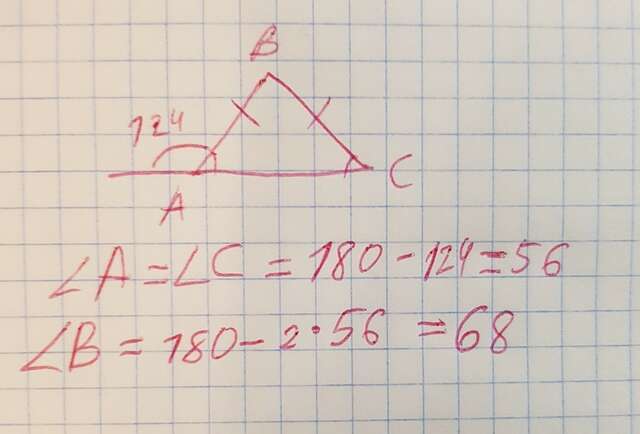 B
124
A
C
∠A=∠C=180-124=56
∠B=180-2·56=68